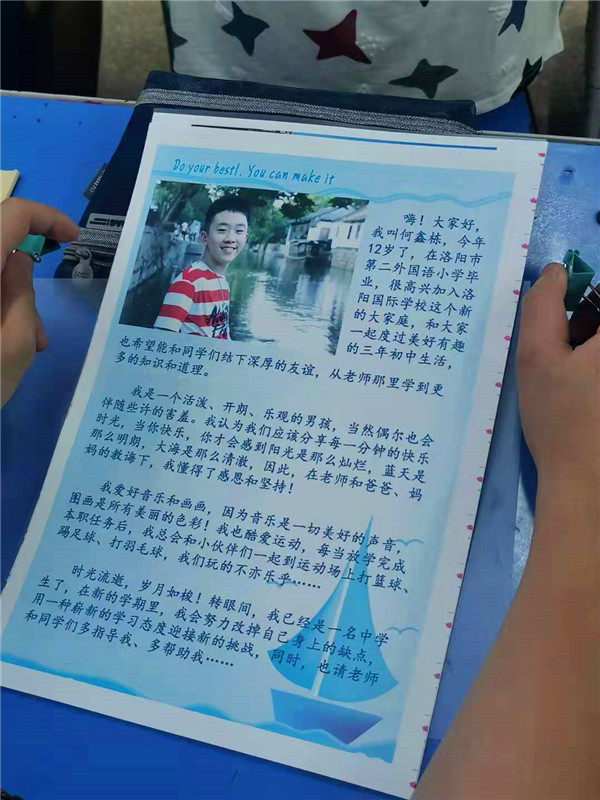 Do your best!. You can make it
嗨！大家好，
我叫何鑫栋，今年
12岁了，在洛阳市
第二外国语小学毕
业，很高兴加入洛
阳国际学校这个新
的大家庭，和大家
一起度过美好有趣
的三年初中生活，
也希望能和同学们结下深厚的友谊，从老师那里学到更
多的知识和道理。
我是一个活泼、开朗、乐观的男孩，当然偶尔也会
伴随些许的害羞。我认为我们应该分享每一分钟的快乐
时光，当你快乐，你才会感到阳光是那么灿烂，蓝天是
那么明朗，大海是那么清澈，因此，在老师和爸爸、妈
妈的教诲下，我懂得了感恩和坚持！
我爱好音乐和画画，因为音乐是一切美好的声音，
图画是所有美丽的色彩！我也酷爱运动，每当放学完成
本职任务后，我总会和小伙伴们一起到运动场上打篮球、
踢足球、打羽毛球，我们玩的不亦乐乎……
时光流逝，岁月如梭！转眼间，我已经是一名中学
生了，在新的学期里，我会努力改掉自己身上的缺点，
用一种崭新的学习态度迎接新的挑战，同时，也请老师
和同学们多指导我、多帮助我……